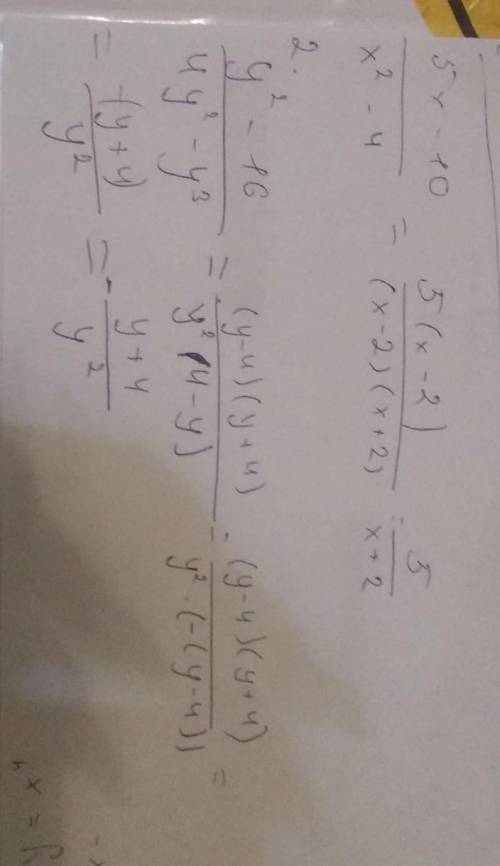 5x - 10 / x² - 4 = 5(x - 2) / (x - 2)(x + 2) = 5 / x + 2
2. y² - 16 / 4y² - y³ = (y-4)(y+4) / y² (4 - y) = (y-4)(y+4) / y² · (-(y-4)) =
= -(y+4) / y² = - y + 4 / y²